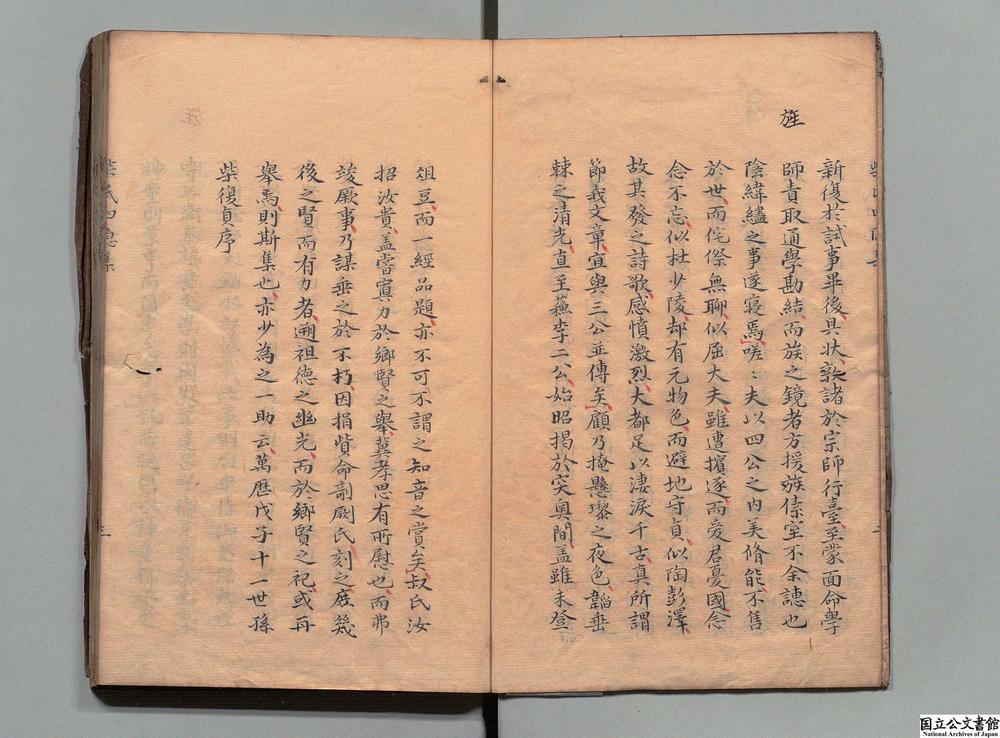 旌
新復於試事畢後具状敦諸於宗師行臺至蒙面命學
師責取通學勘結而族之鏡者方援族傣室不余譓也
陰緯繣之事遂寢焉嗟〻夫以四公之內美脩能不售
於世而侘傺無聊似屈大夫雖遭擯逐而爱君憂國念
念不忘似杜少陵却有元物色而避地守貞似陶彭澤
故其發之詩歌感憤激烈大都足以淒淚千古真所謂
節義文章宜與三公並傳矣顧乃掩懸瓈之夜色韜垂
棘之清光直至蘓李二公始昭揭於突奥間盖雖未登
俎豆而一經品題亦不可不謂之知音之賞矣叔氏汝
招汝貴盖嘗寘力於鄉賢之舉冀孝思有所慰也而弗
竣厥事乃謀垂之於不朽因捐貲命剞劂氏刻之庶幾
後之賢而有力者遡祖德之幽光而於鄉賢之祀或再
舉焉則斯集也亦少為之一助云萬曆戊子十一世孫
柴復貞序
柴氏四隱集
三
国立公文書館
National Archives of Japan